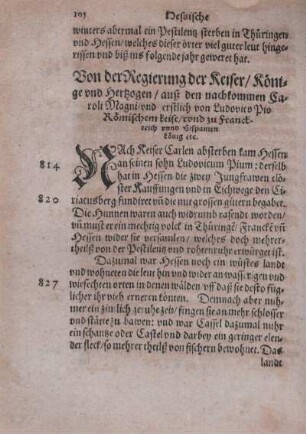 105 Hessische
winters abermal ein Pestilentz sterben in Thüringen
vnd Hessen/welches dieser örter viel guter leut hinge-
rissen vnd biß ins folgende jahr geweret hat.
Von der Regierung der Keiser/Köni-
ge vnd Hertzogen/ auß den nachkommen Ca-
roli Magni/ vnd erstlich von Ludouico Pio
Römischem keiser/vnnd zu Franck-
reich vnnd Hispanien
könig etc.
814 NAch Keiser Carlen absterben kam Hessen
an seinen sohn Ludouicum Pium: derselb
hat in Hessen die zwey Jungfrawen clö-
ster Kauffungen vnd in Eschwege den Ci-
820 riacusberg fundiret vñ die mit grossen gütern begabet.
Die Hunnen waren auch widrumb rasendt worden/
vñ must er ein mechtig volck in Thüringẽ/ Franckẽ vñ
Hessen wider sie versamlen/ welches doch mehrer-
theilß von der Pestilentz vnd rohten ruhr erwürget ist.
Dazumal war Hessen noch ein wüstes landt
vnd wohneten die leut hin vnd wider an wassergen vnd
827 wiesechten orten in denen wälden/ vff daß sie desto füg-
licher ihr vieh erneren könten. Demnach aber nuh-
mer ein zimlich zeit ruhe/ fingen sie an mehr schlosser
vnd stätte zu bawen: vnd war Cassel dazumal nuhr
ein schantze oder Castel vnd darbey ein geringer elen-
der fleck/ so mehrer theilß von fischern bewohnet. Das
landt